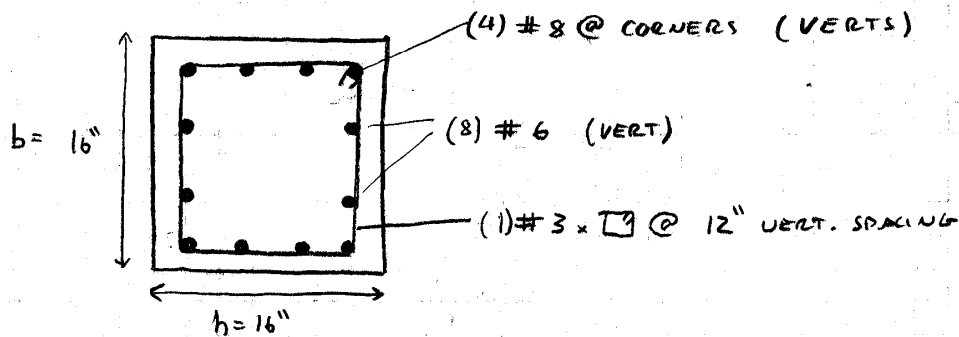 (4) # 8 @ CORNERS (VERTS)
b= 16"
(8) # 6 (VERT.)
(1) # 3 × @ 12" VERT. SPACING
h=16"